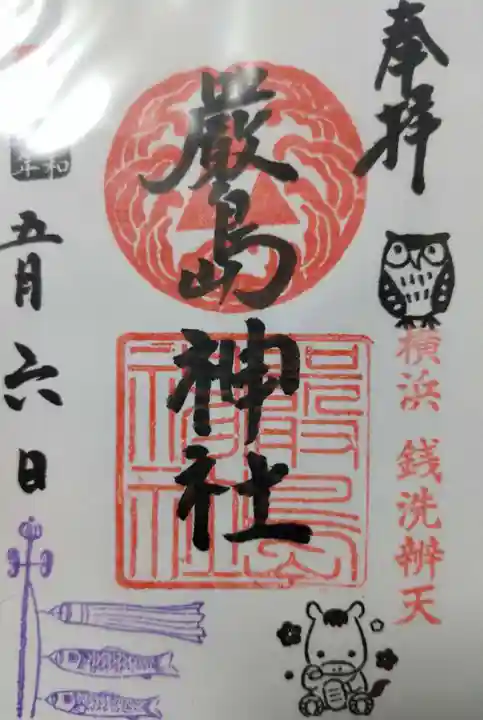 奉拝
横浜 銭洗辨天
嚴島神社
嚴島
神社
五月六日